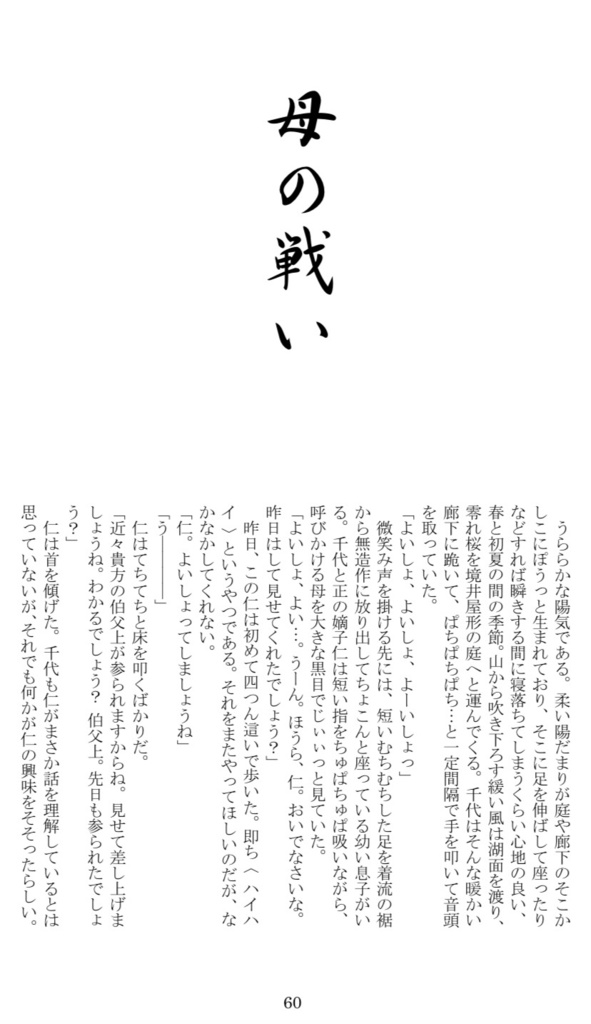 母の戦い
　うららかな陽気である。柔い陽だまりが庭や廊下のそこか
しこにぽうっと生まれており、そこに足を伸ばして座ったり
などすれば瞬きする間に寝落ちてしまうくらい心地の良い、
春と初夏の間の季節。山から吹き下ろす緩い風は湖面を渡り、
零れ桜を境井屋形の庭へと運んでくる。千代はそんな暖かい
廊下に跪いて、ぱちぱちぱち…と一定間隔で手を叩いて音頭
を取っていた。
「よいしょ、よいしょ、よーいしょっ」
　微笑み声を掛ける先には、短いむちむちした足を着流の裾
から無造作に放り出してちょこんと座っている幼い息子がい
る。千代と正の嫡子仁は短い指をちゅぱちゅぱ吸いながら、
呼びかける母を大きな黒目でじぃぃっと見ていた。
「よいしょ、よい…。うーん。ほうら、仁。おいでなさいな。
昨日はして見せてくれたでしょう？」
　昨日、この仁は初めて四つん這いで歩いた。即ち〈ハイハ
イ〉というやつである。それをまたやってほしいのだが、な
かなかしてくれない。
「仁。よいしょってしましょうね」
「う――――」
　仁はてちてちと床を叩くばかりだ。
「近々貴方の伯父上が参られますからね。見せて差し上げま
しょうね。わかるでしょう？　伯父上。先日も参られたでしょ
う？」
　仁は首を傾げた。千代も仁がまさか話を理解しているとは
思っていないが、それでも何かが仁の興味をそそったらしい。
60